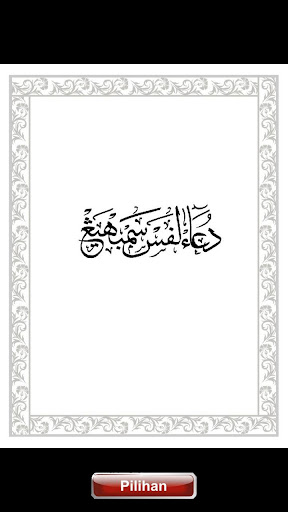 دعاء لفس سمبهيڠ
Pilihan